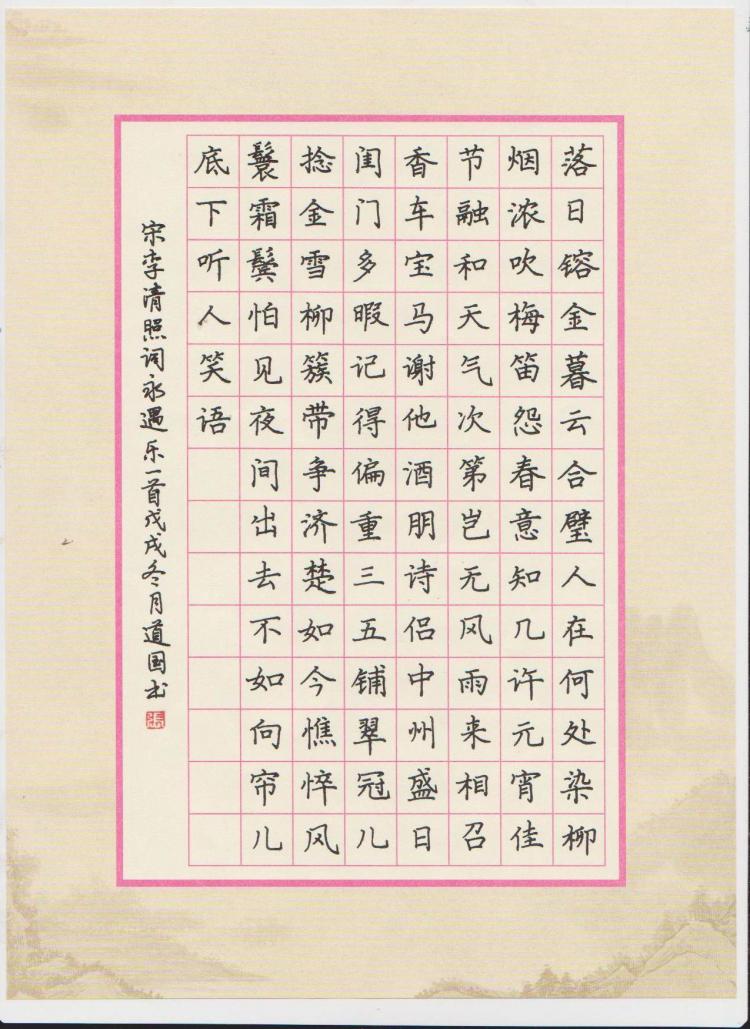 落日镕金暮云合璧人在何处染柳
烟浓吹梅笛怨春意知几许元宵佳
节融和天气次第岂无风雨来相召
香车宝马谢他酒朋诗侣中州盛日
闺门多暇记得偏重三五铺翠冠儿
捻金雪柳簇带争济楚如今憔悴风
鬟霜鬓怕见夜间出去不如向帘儿
底下听人笑语
宋李清照词永遇乐一首戊戌冬月道国书
张